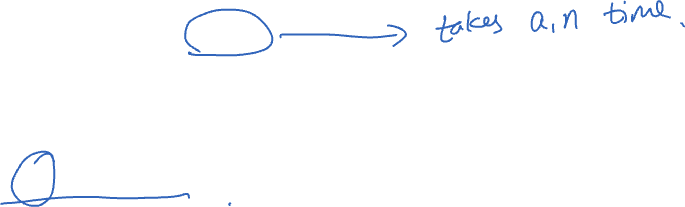 takes a,n time.